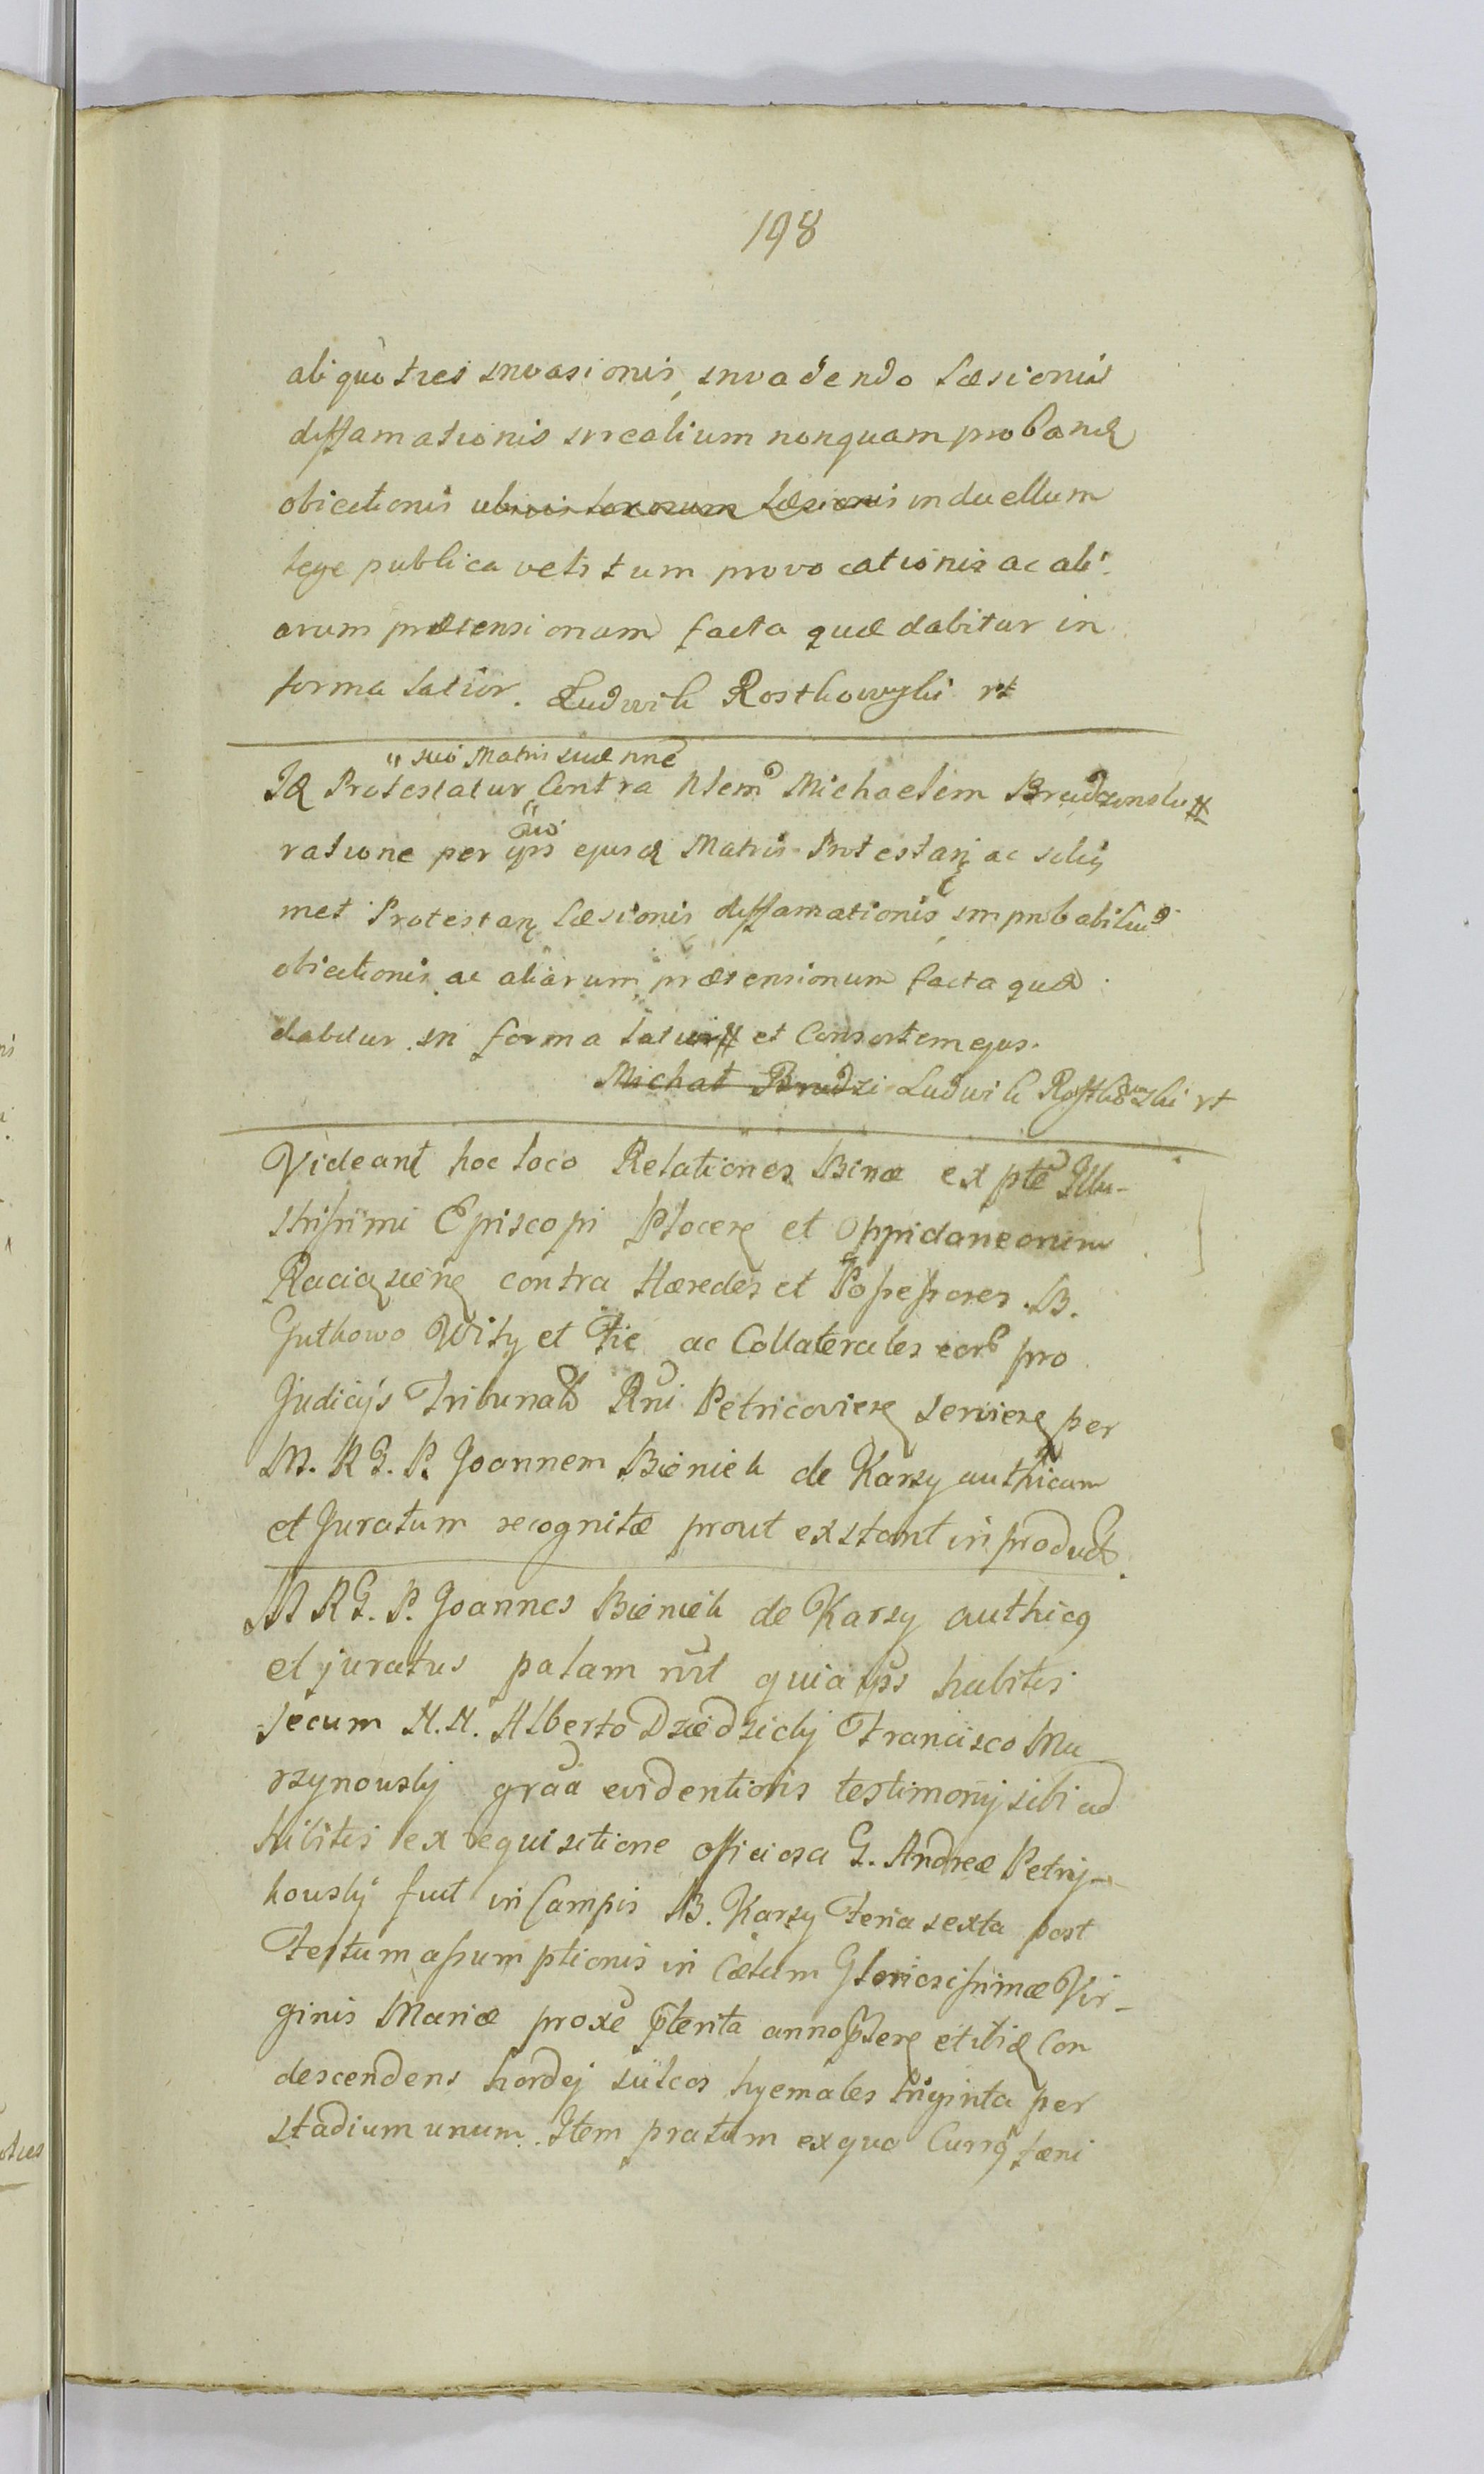 198
aliquoties invasionis, invadendo Læsionis
diffamationis irrealium nonquam proband
obiectionis ubivis locorum Læsionis in duellum
lege publica vetitum provocationis ac ali
arum prætensionum facta quæ dabitur in
forma latior. Ludwik Rostkowski rt
" suo Matris suæ nne
Id Protestatur Contra Nlem Michaelem Brudzinski #
ratione per ips ejusd Matris Protestan ac sibi
met Protestan Læsionis diffamationis improbabilium
obiectionis ac aliarum prætensionum facta quæ
dabitur in forma latiori # et Consortem ejus.
Michał Brudzi Ludwik Rostkowski rt
Videant hoc loco Relationes Binæ ex pte Illu-
strissimi Episcopi Plocen et Oppidaneorum
Raciązien contra Hæredes et Possessores B.
Gutkowo Wity et Fic ac Collaterales eor pro
Judicijs Tribunal Rni Petricovien servien per
M. R G. P. Joannem Bieniek de Karsy authicum
et Juratum recognitæ prout exstant in product.
M R G. P. Joannes Bieniek de Karsy authicq
et juratus palam rvit quia ips habitis
secum N.N. Alberto Dziedzicky Francisco Mu
rzynousky graa evidentioris testimonij sibi ad
hibitis ex requisitione officiosa G. Andreæ Petry-
kousky fuit in Campis B. Karsy Feria sexta post
Festum assumptionis in Cœlum Gloriosissimæ Vir-
ginis Mariæ proxe pterita anno psen et ibid Con
descendens hordej sulcos hyemales triginta per
stadium unum. Item pratum ex quo Currq fœni